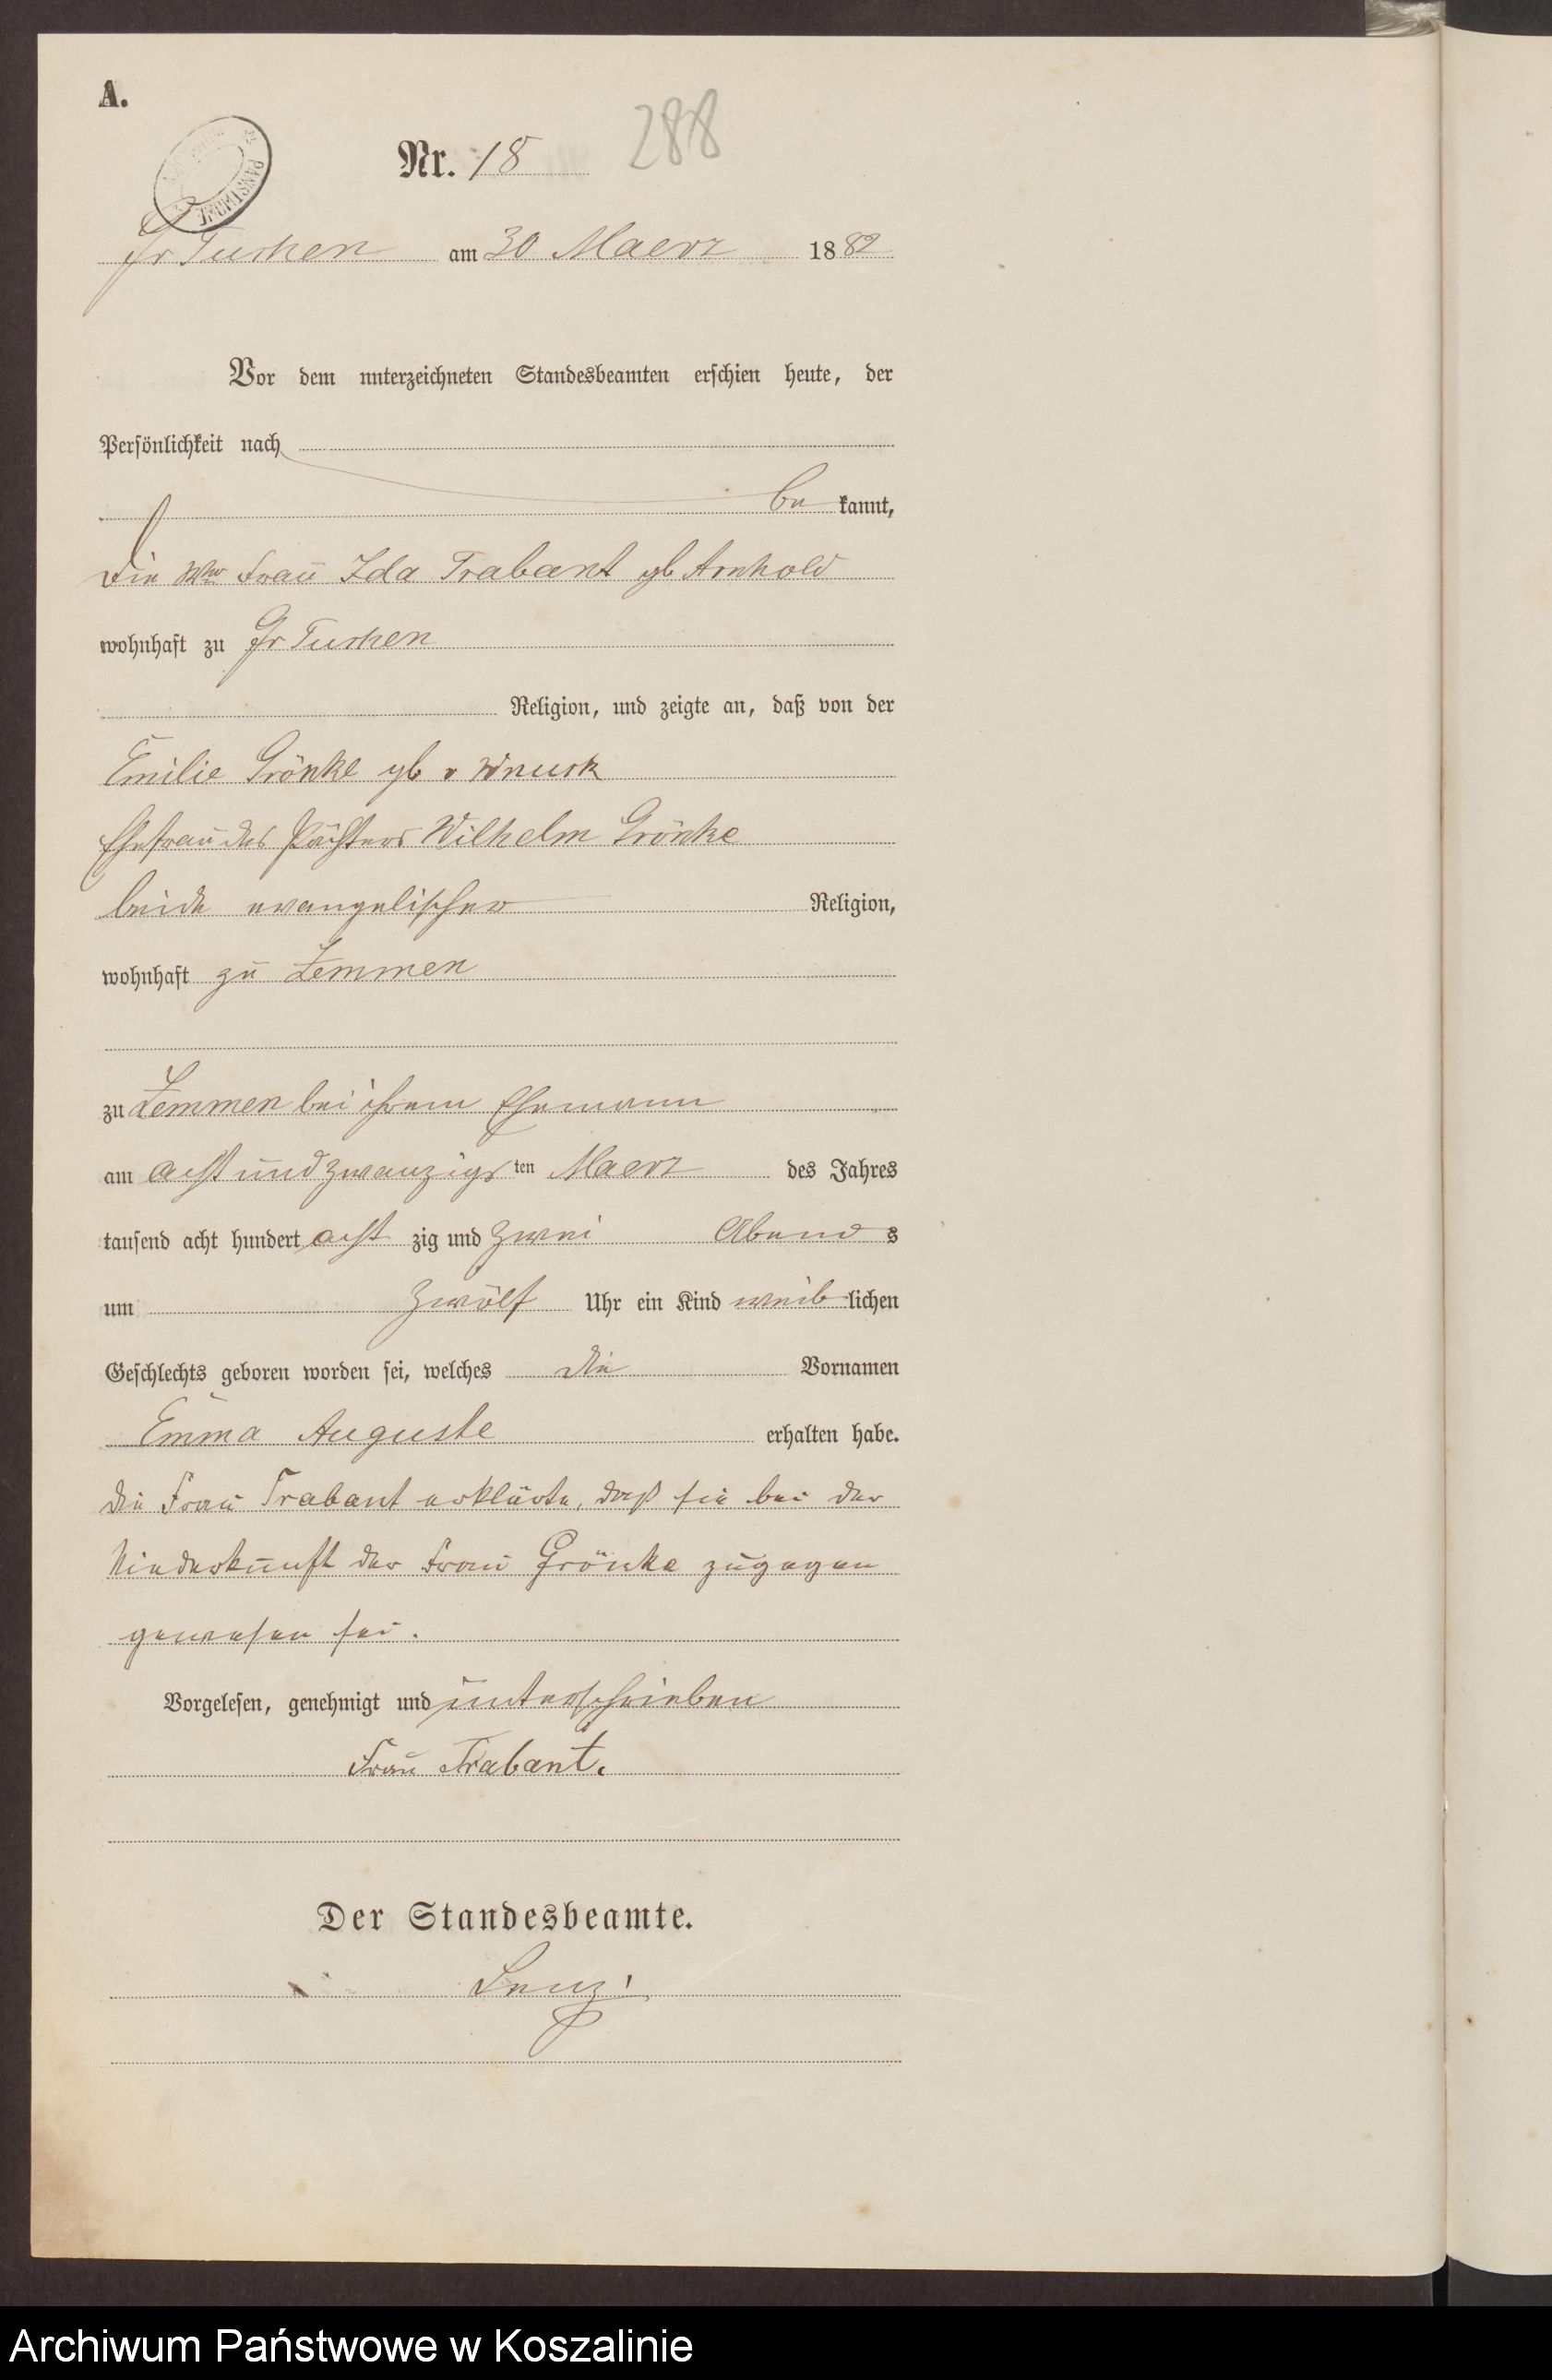 A.
Nr. 18 288
PAŃSTWOWE
Gr Tuchen am 30 Maerz 1882
Vor dem unterzeichneten Standesbeamten erschien heute, der
Persönlichkeit nach
be kannt,
die Wwe Frau Ida Trabant gb Arnhold
wohnhaft zu Gr Tuchen
Religion, und zeigte an, daß von der
Emilie Grönke gb v Wnuck
Ehefrau des Pächters Wilhelm Grönke
beide evangelischer Religion,
wohnhaft zu Zemmen
zu Zemmen bei ihrem Ehemann
am acht und zwanzigs ten Maerz des Jahres
tausend acht hundert acht zig und zwei Abend s
um zwölf Uhr ein Kind weib lichen
Geschlechts geboren worden sei, welches die Vornamen
Emma Auguste erhalten habe.
die Frau Trabant erklärte, daß sie bei der
Niederkunft der Frau Grönke zugegen
gewesen sei.
Vorgelesen, genehmigt und unterschrieben
Frau Trabant.
Der Standesbeamte.
Lenz
Archiwum Państwowe w Koszalinie